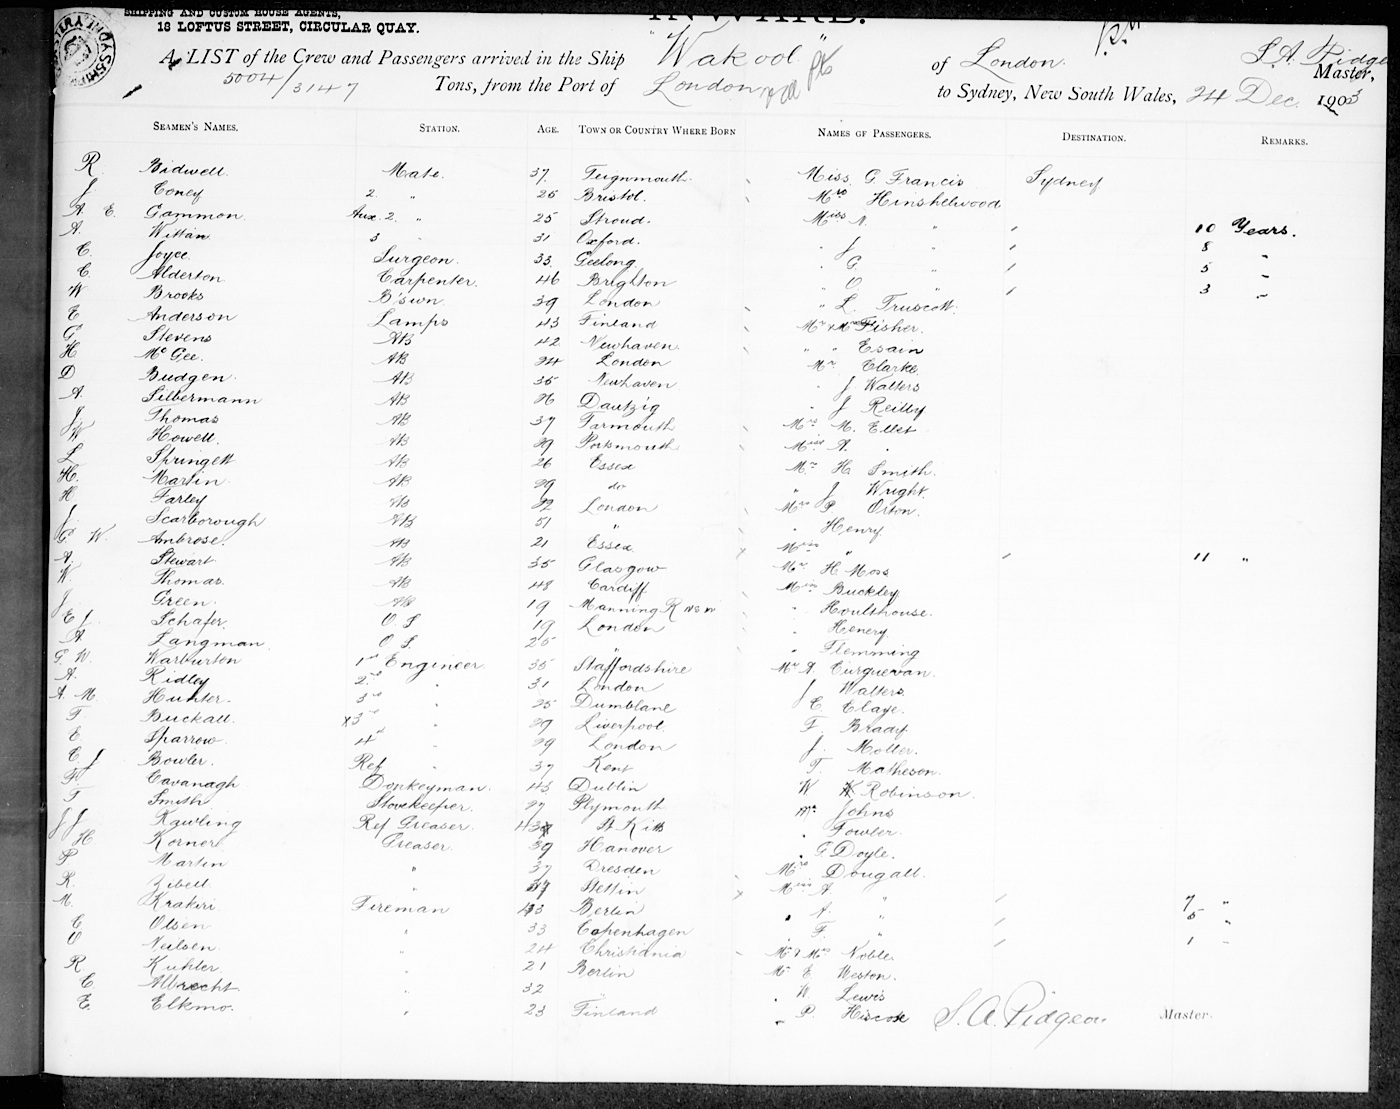 SHIPPING AND CUSTOM HOUSE AGENTS,
18 LOFTUS STREET, CIRCULAR QUAY.
INWARD.
A LIST of the Crew and Passengers arrived in the Ship "Wakool" of London. S. A. Pidgeon Master,
5004/3147 Tons, from the Port of London to Sydney, New South Wales, 24 Dec. 1903
SEAMEN'S NAMES. STATION. AGE. TOWN OR COUNTRY WHERE BORN NAMES OF PASSENGERS. DESTINATION. REMARKS.
R. Bidwell. Mate. 37 Teignmouth Miss G. Francis Sydney
J. Coney 2. " 25 Bristol. Mrs Hinshelwood
A. E. Gammon. Aux. 2. " 25 Stroud. Miss N. " 10 Years.
A. Wittan 3 " 31 Oxford. " J. " 8 "
C. Joyce. Surgeon. 33. Geelong " G. " 5 "
C. Alderton. Carpenter. 46 Brighton " O. " 3 "
W Brooks B'swn. 39 London " L. Truscott.
E Anderson Lamps 43 Finland Mr & Mrs Fisher.
G. Stevens AB 42 Newhaven " " Esain
H McGee. AB 24 London Mr. Clarke
D Budgen. AB 35 Newhaven " J Walters
A. Silbermann AB 26 Dautzig " J Reilly
J. Thomas AB 37 Yarmouth Mrs M. Ellet
W Howell. AB 29 Portsmouth Miss A. "
L Springett AB 26 Essex Mr H. Smith.
H. Martin AB 29 do " J Wright.
H Farley AB 22 London Mrs P. Orton.
J. Scarborough AB 51 " " Henry
G. W. Ambrose. AB 21 Essex. Miss " 11 "
A. Stewart AB 35 Glasgow Mr. H Moss
W. Thomas. AB 48 Cardiff Miss Buckley
J. Green. AB 19 Manning R NSW " Houlthouse.
E J. Schafer. O S 19 London " Henery
A. Langman. O S. 25 " " Flemming
G. W. Warburton 1st Engineer. 35 Staffordshire Mr A Curguevan.
A. Ridley 2nd " 31 London J Walters
A. M. Hunter. 3rd " 25 Dumblane C. Claye.
F. Buckall. x3rd " 29 Liverpool. F. Brady
E. Sparrow. 4th " 29 London J. Motter.
C J Bowler. Ref. " 37 Kent T. Matheson.
F. Cavanagh Donkeyman. 43 Dublin W Robinson.
T. Smith Storekeeper. 27 Plymouth Mr. Johns
J J Rawling Ref Greaser. 43 St Kitts " Fowler.
H Korner Greaser. 39 Hanover " G. Doyle.
P Martin " 37 Dresden Mrs Dougall.
R. Zibell. " 37 Stettin Miss A "
M. Krakiri Fireman 43 Berlin " A. " 7 "
C Olsen " 33 Copenhagen " F. " 5 "
O Neilsen. " 24 Christiania Mr & Mrs Noble. 1 "
R Kuhler " 21 Berlin Mr E Weston.
C Albrecht " 32 " W Lewis
E. Elkmo. " 23 Finland " P. Hiscox S. A. Pidgeon Master.